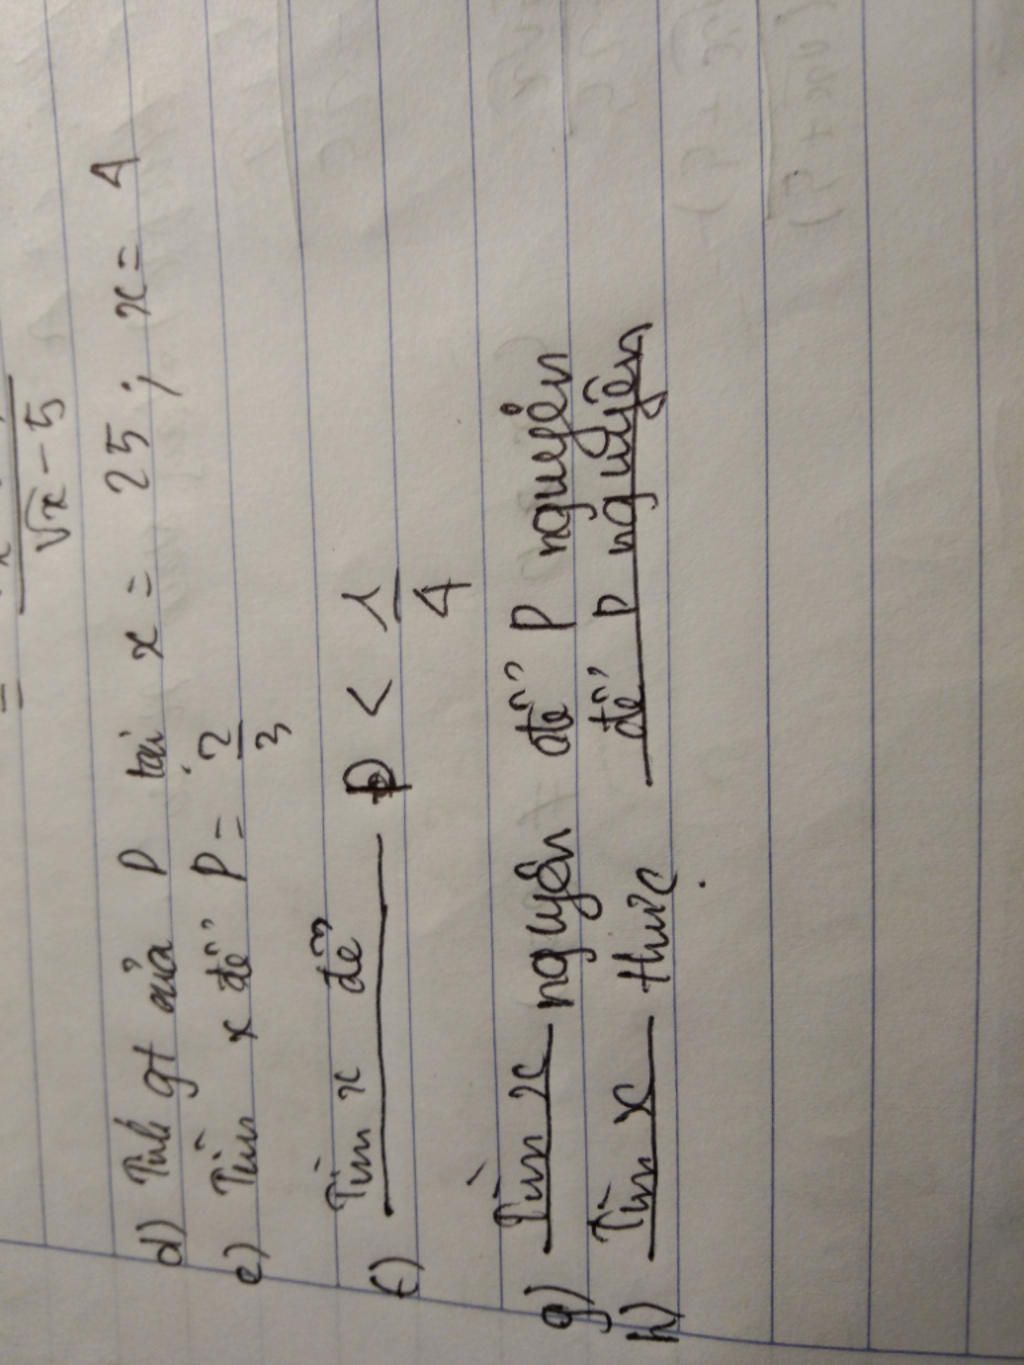 =
√x - 5
d) Tính gt của P tại x = 25 ; x = 4
e) Tìm x để P = 2/3
f) Tìm x để P < 1/4
g) Tìm x nguyên để P nguyên
h) Tìm x thực để P nguyên